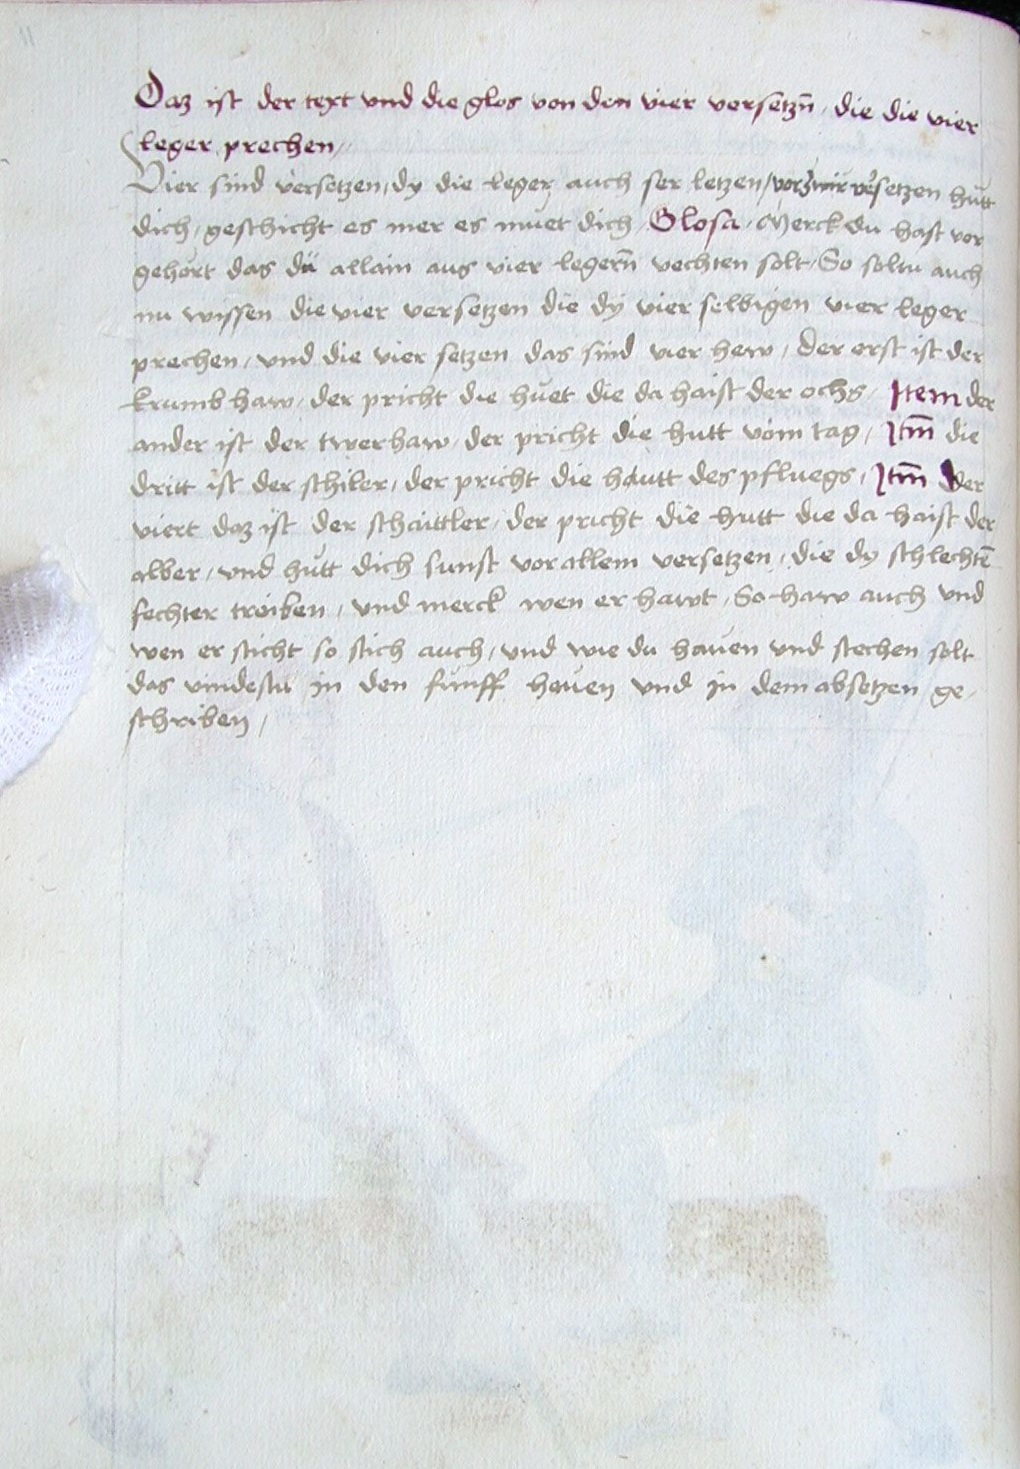 Daz ist der text vnd die glos von den vier versetzn̄ / die die vier
leger prechen /
Vier sind versetzen / dy die leger auch ser letzen / vor versetzen hútt
dich / geschicht es mer es múet dich / Glosa / Merck du hast vor
gehört das dú allain aus vier legern̄ vechten solt / So soltu auch
nu wissen die vier versetzen die dy vier selbigen vier leger
prechen / vnd die vier setzen das sind vier hew / der erst ist der
krumb haw / der pricht die húet die da haist der ochs / Item der
ander ist der twerhaw / der pricht die hutt vom tag / Itm̄ die
dritt ist der schiler / der pricht die hdutt des pfluegs / Itm̄ der
viert daz ist der schaittler / der pricht die hutt die da haist der
alber / vnd hútt dich sunst vor allem versetzen / die dy schlechtē
fechter treiben / vnd merck wen er hawt / So haw auch vnd
wen er sticht so stich auch / vnd wie du hauen vnd stechen solt
das vindestu in den fúnff heuen vnd in dem absetzen ge
schriben /